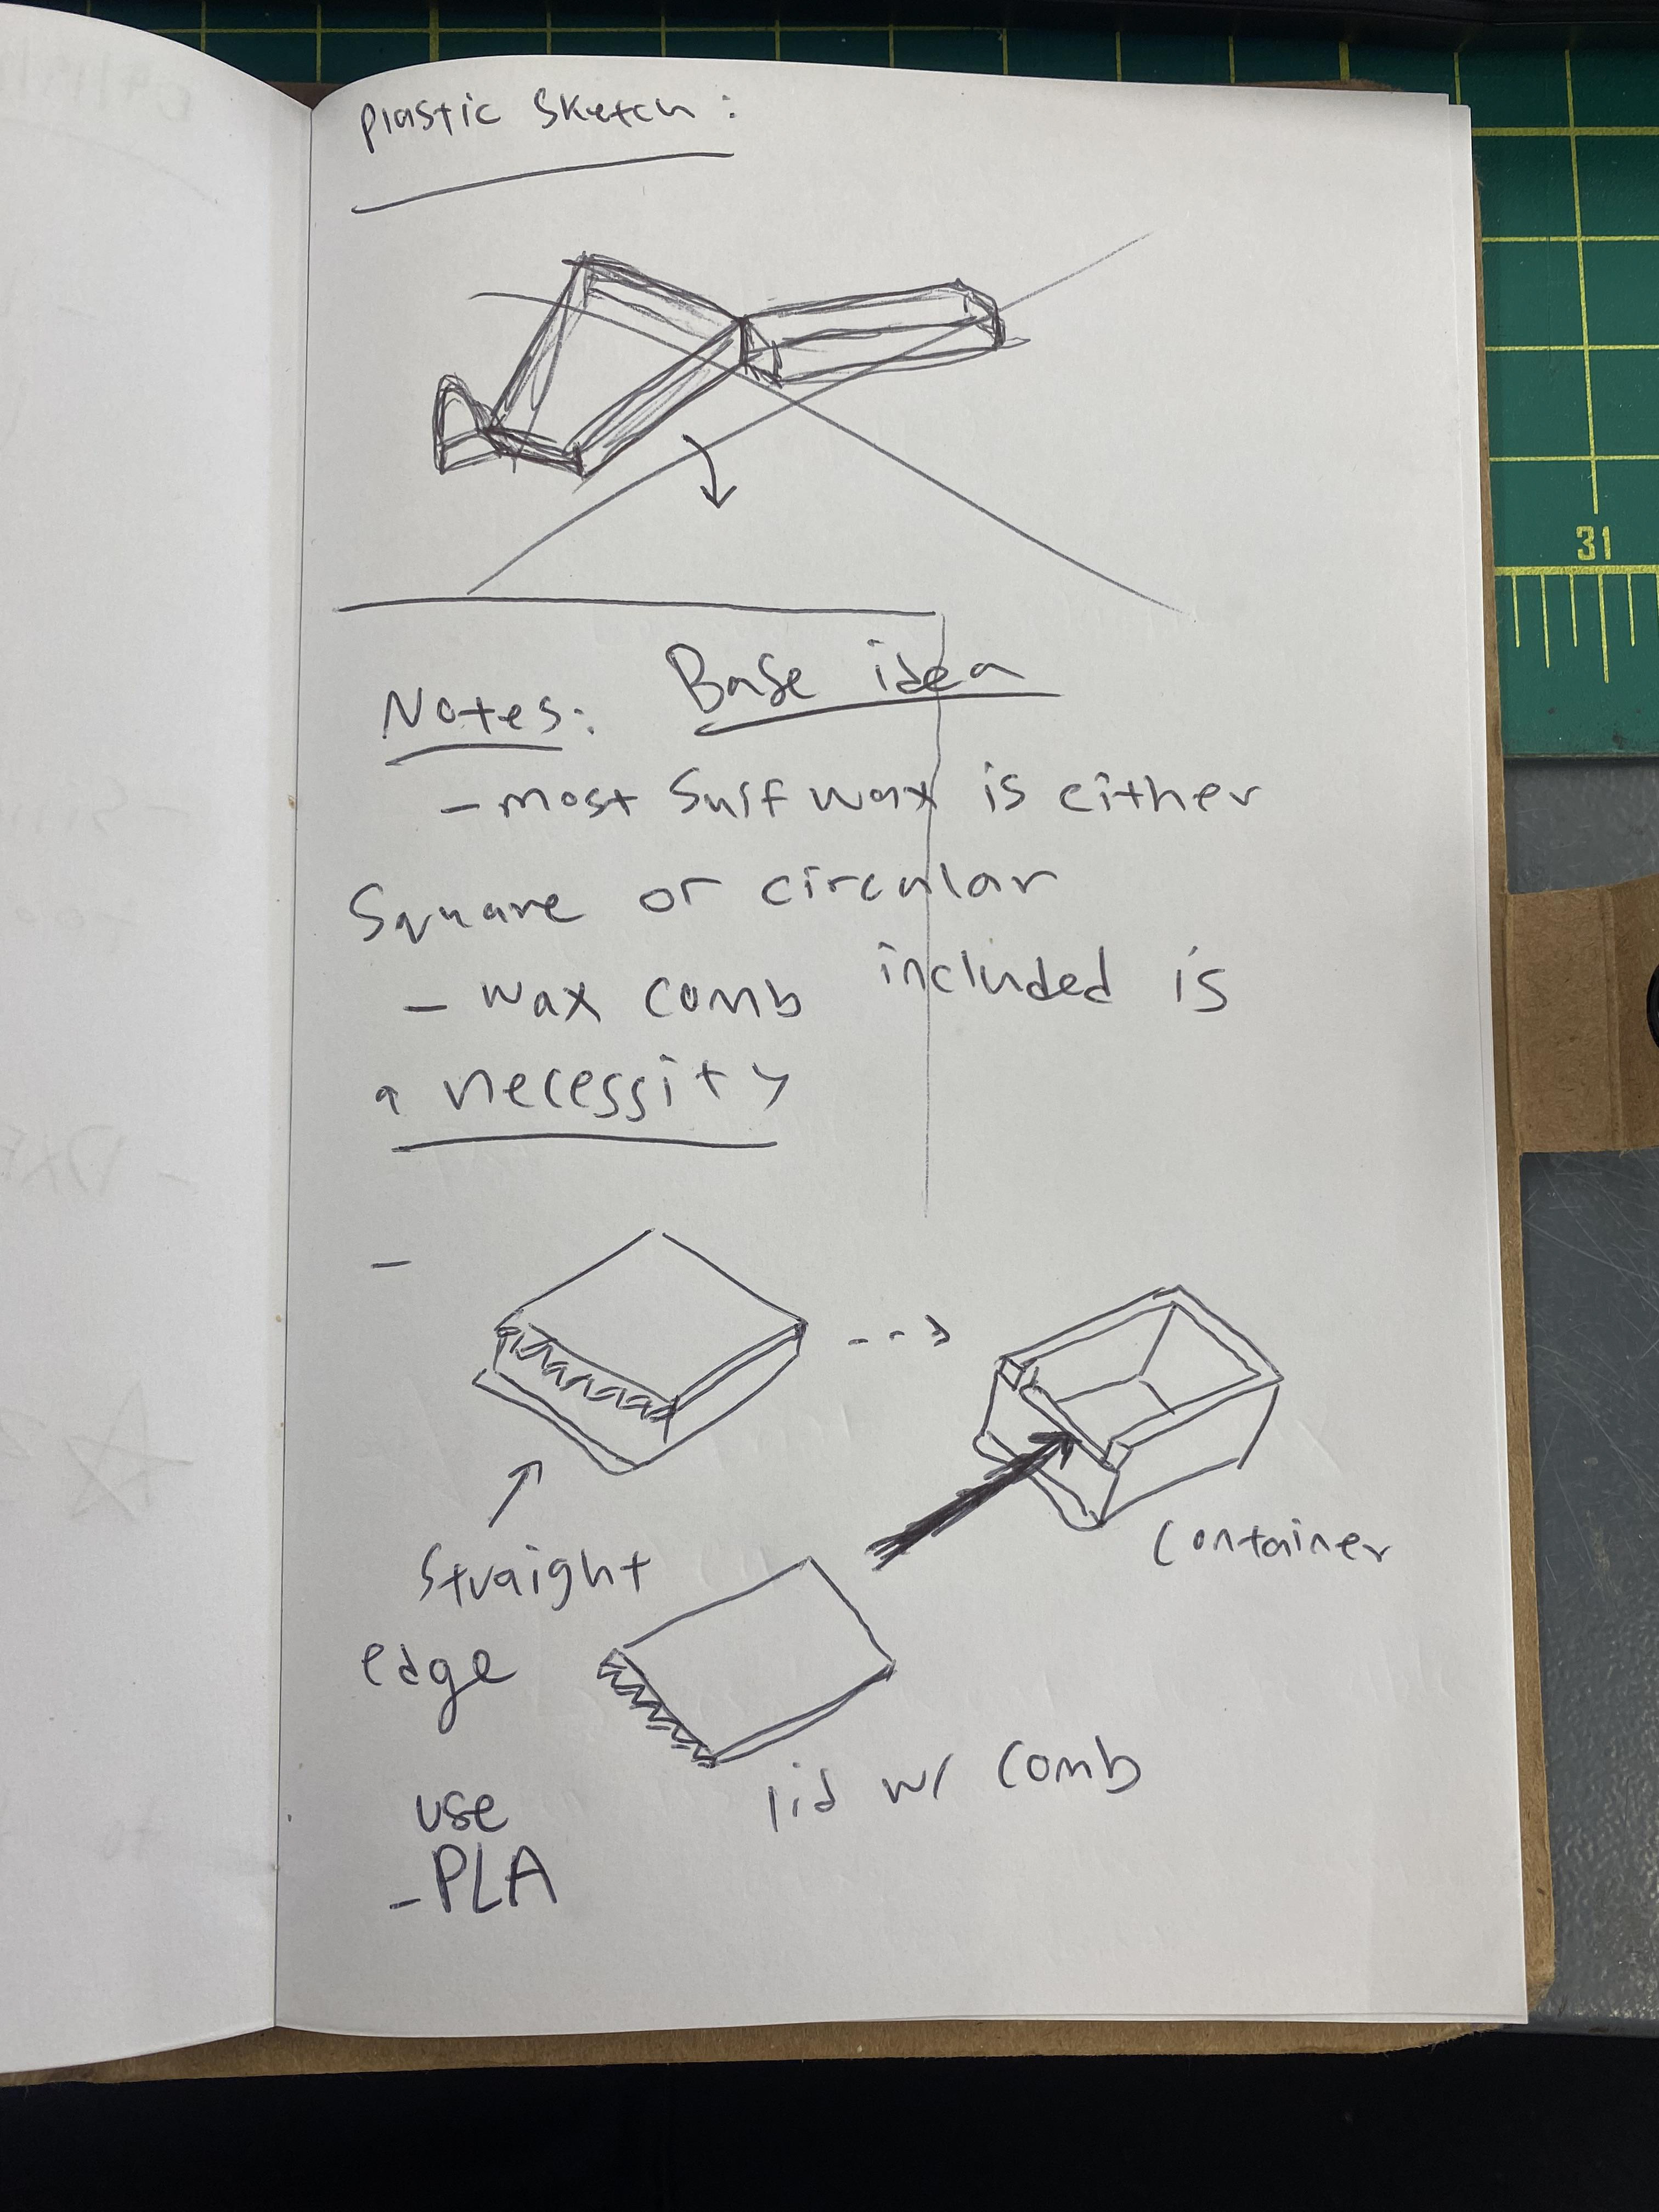 Plastic Sketch:
Base idea
Notes:
- most surf wax is either
Square or circular
- wax comb included is
a necessity
-
Straight
edge
Container
lid w/ comb
use
- PLA
31